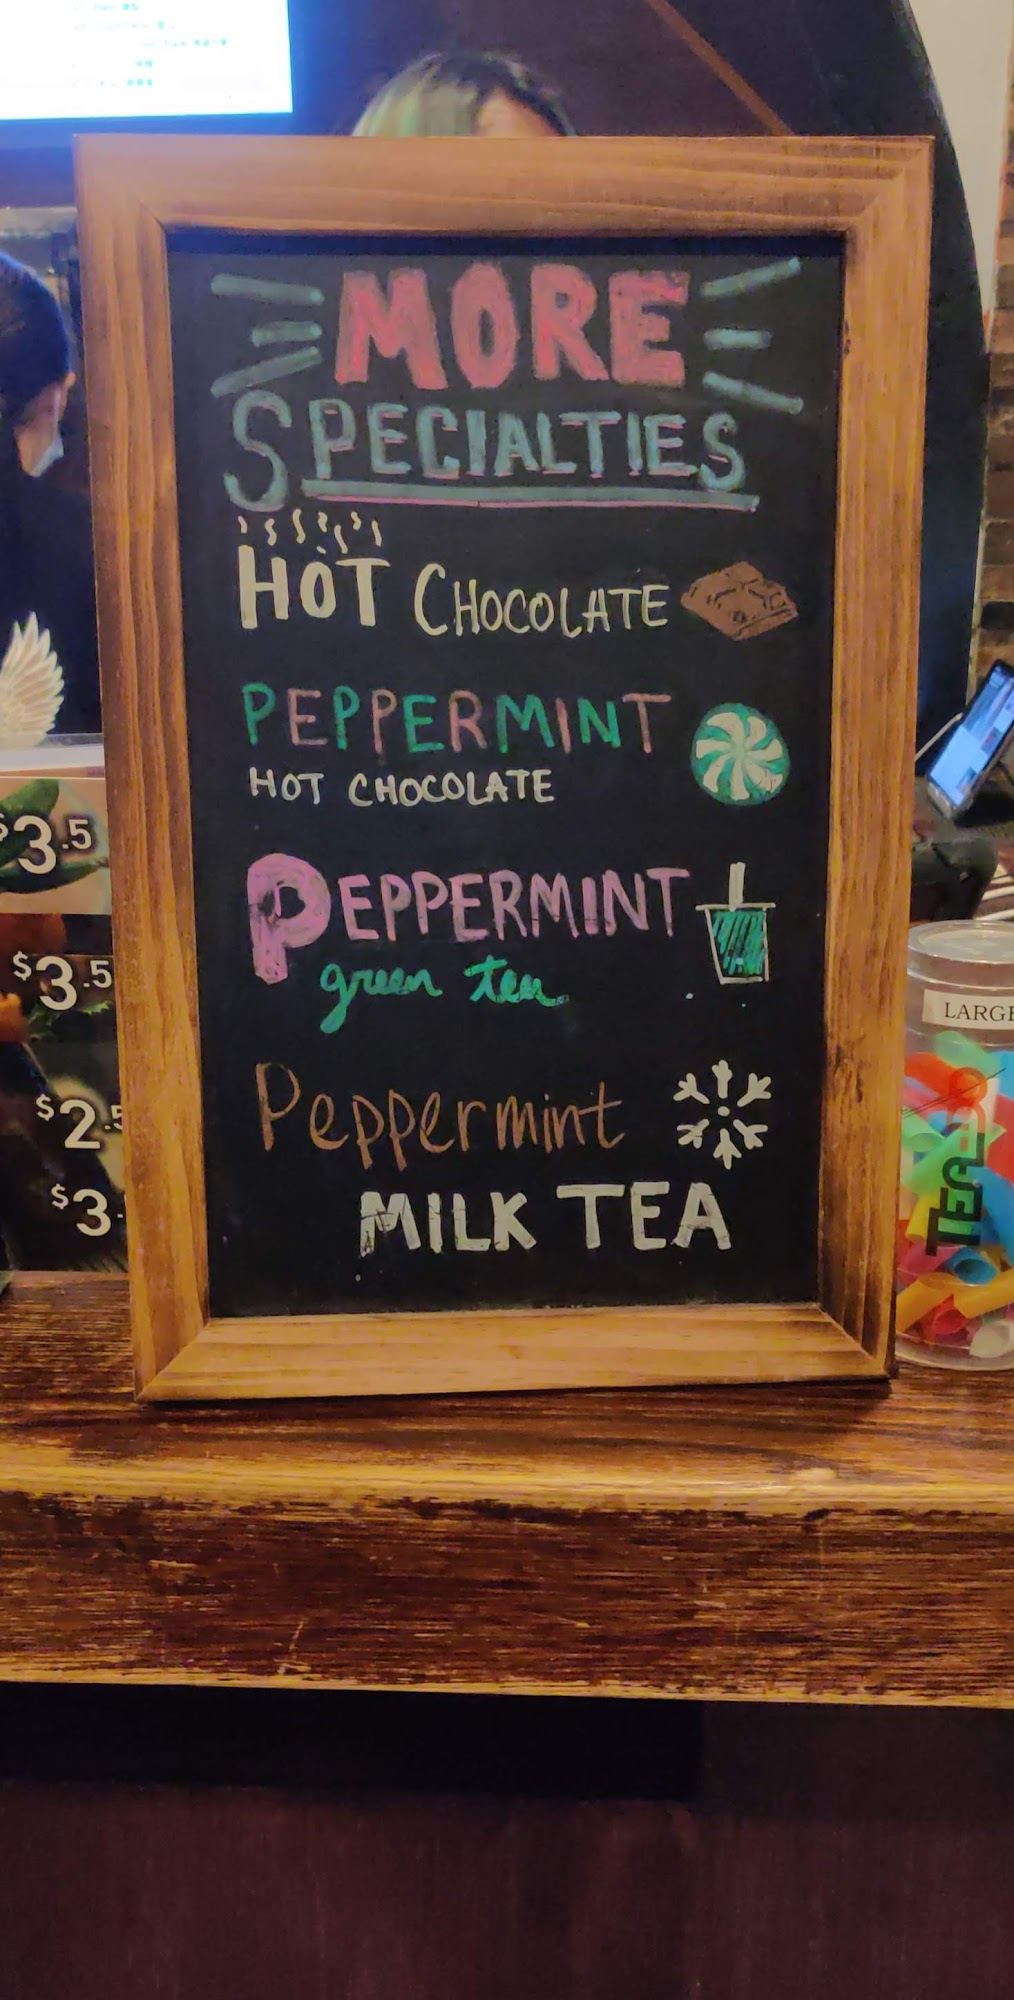 MORE
SPECIALTIES
HOT CHOCOLATE
PEPPERMINT
HOT CHOCOLATE
PEPPERMINT
green tea
Peppermint
MILK TEA
$3.5
$3.5
$2.5
$3.
LARGE
TEA